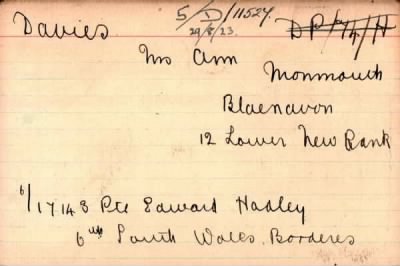 Davies
5/D/11527.
29/8/23.
Mrs Ann
Monmouth
Blaenavon
12 Lower New Rank
6/17143 Pte Edward Hadley
6th South Wales Borderes